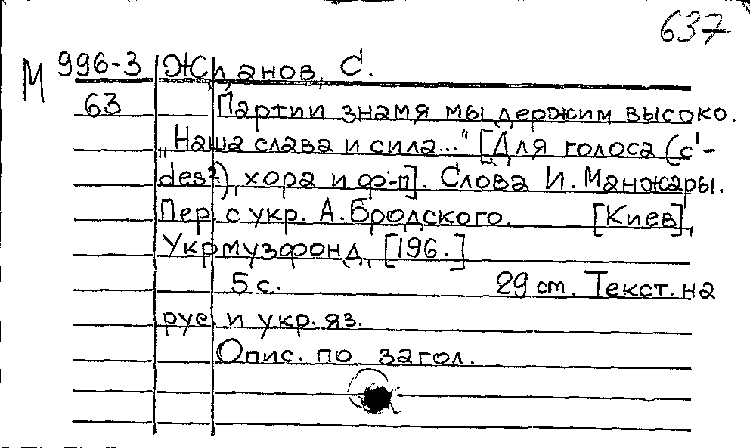 637
М 996-3 Жданов, С.
63 Партии знамя мы держим высоко.
„Наша слава и сила..." [Для голоса (c¹-
des²), хора и ф-п]. Слова И. Манжары.
Пер. с укр. А. Бродского. [Киев],
Укрмузфонд, [196.]
5 с. 29 см. Текст. на
рус. и укр. яз.
Опис. по загол.